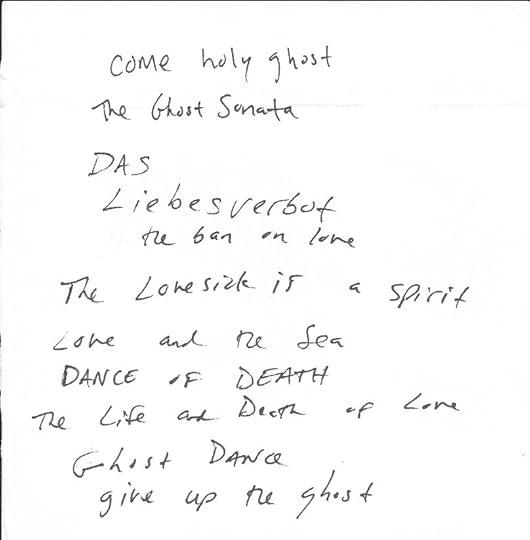 COME holy ghost
The Ghost Sonata
DAS
Liebesverbot
the ban on love
The Lovesick is a spirit
Love and the Sea
DANCE OF DEATH
The Life and Death of Love
Ghost DANCE
give up the ghost